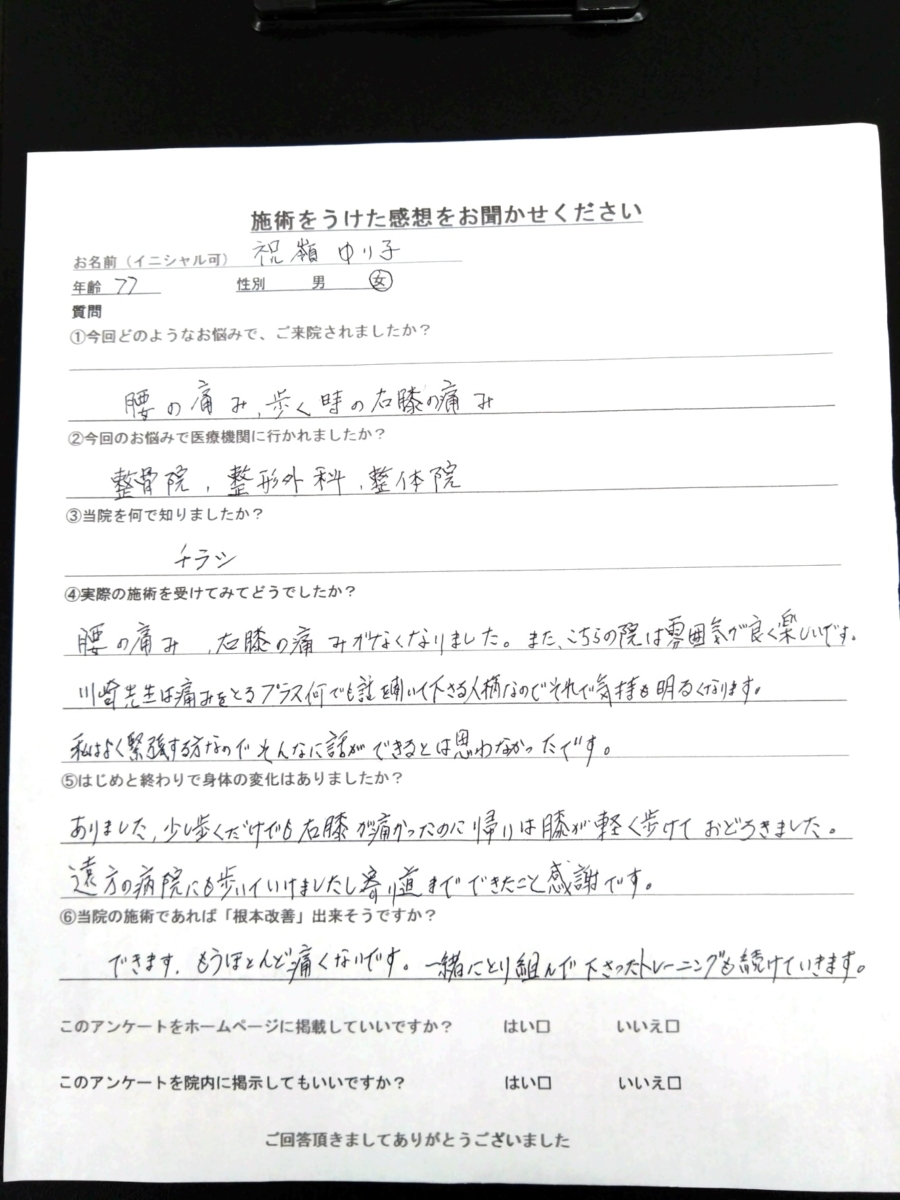 施術をうけた感想をお聞かせください
お名前（イニシャル可） 祝嶺 ゆり子
年齢 77 性別 男 女
質問
①今回どのようなお悩みで、ご来院されましたか？
腰の痛み、歩く時の右膝の痛み
②今回のお悩みで医療機関に行かれましたか？
整骨院、整形外科、整体院
③当院を何で知りましたか？
チラシ
④実際の施術を受けてみてどうでしたか？
腰の痛み、右膝の痛みがなくなりました。また、こちらの院は雰囲気が良く楽しいです。
川崎先生は痛みをとるプラス何でも話を聞いて下さる人柄なのでそれで気持も明るくなります。
私はよく緊張する方なのでそんなに話ができるとは思わなかったです。
⑤はじめと終わりで身体の変化はありましたか？
ありました、少し歩くだけでも右膝が痛かったのに帰りは膝が軽く歩けておどろきました。
遠方の病院にも歩いていけましたし寄り道までできたこと感謝です。
⑥当院の施術であれば「根本改善」出来そうですか？
できます、もうほとんど痛くないです。一緒にとり組んで下さったトレーニングも続けていきます。
このアンケートをホームページに掲載していいですか？ はい□ いいえ□
このアンケートを院内に掲示してもいいですか？ はい□ いいえ□
ご回答頂きましてありがとうございました